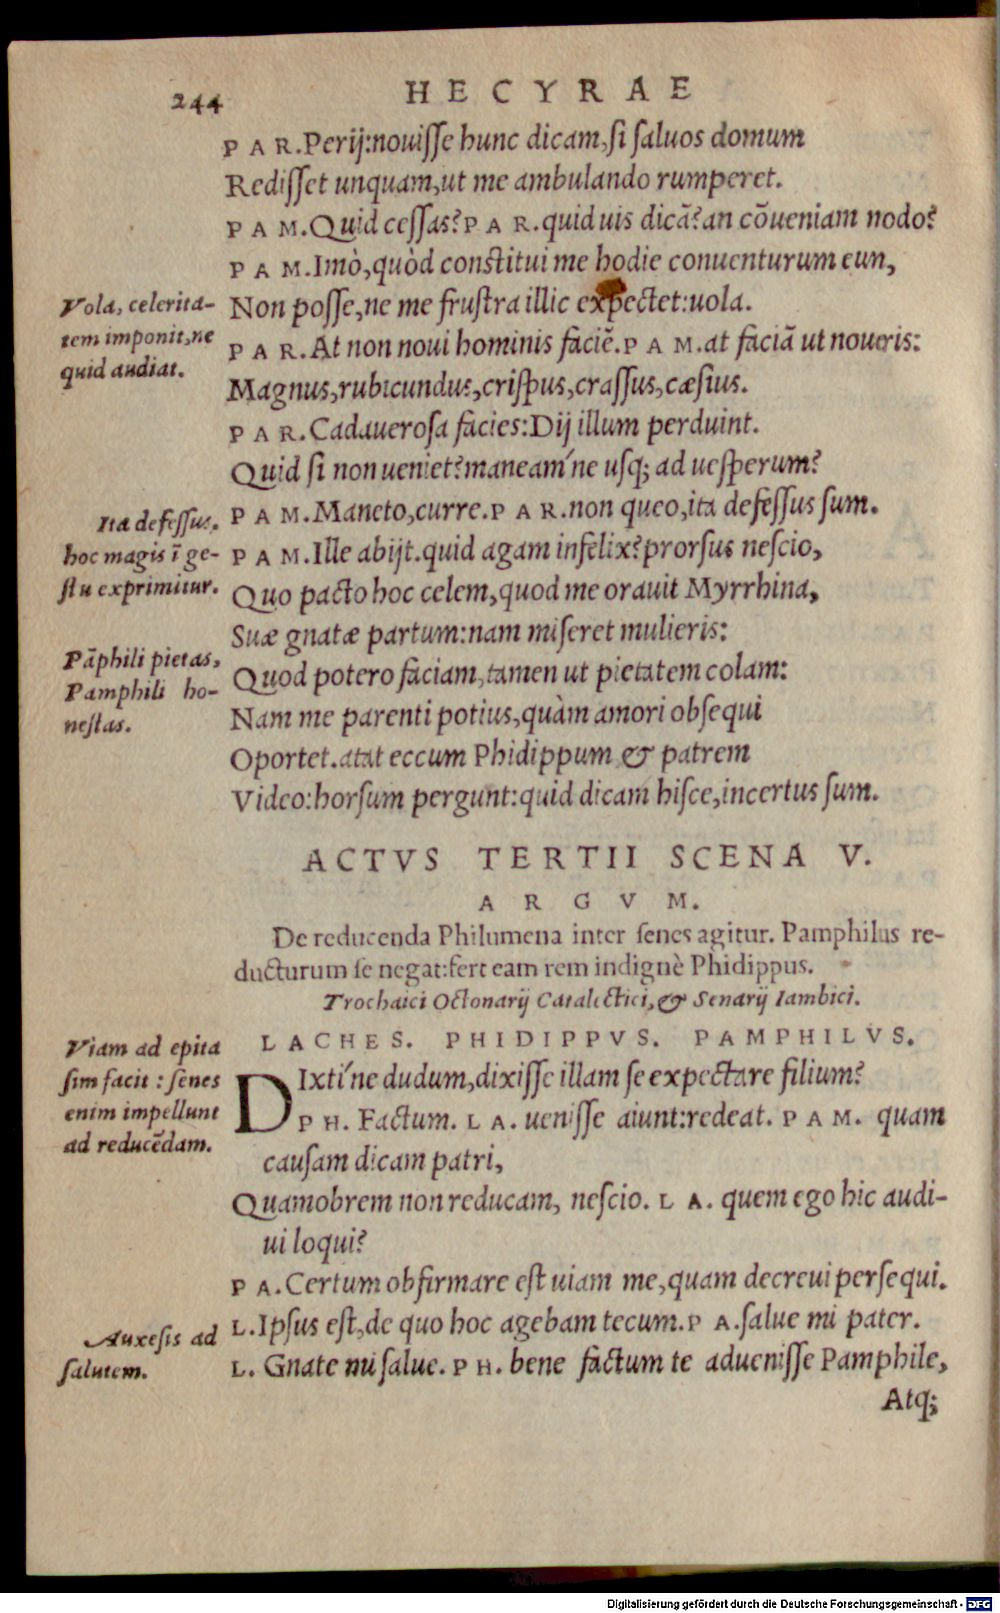 244 HECYRAE
PAR. Perij: nouisse hunc dicam, si saluos domum
Redisset unquam, ut me ambulando rumperet.
PAM. Quid cessas? PAR. quid uis dicā? an cōueniam nodo?
PAM. Imò, quòd constitui me hodie conuenturum eun,
Non posse, ne me frustra illic expectet: uola.
Vola, celerita-
tem imponit, ne
quid audiat.
PAR. At non noui hominis faciē. PAM. at faciā ut noueris:
Magnus, rubicundus, crispus, crassus, cæsius.
PAR. Cadauerosa facies: Dij illum perduint.
Quid si non ueniet? maneam'ne usq; ad uesperum?
PAM. Maneto, curre. PAR. non queo, ita defessus sum.
Ita defessus.
hoc magis ī ge-
stu exprimitur.
PAM. Ille abijt. quid agam infelix? prorsus nescio,
Quo pacto hoc celem, quod me orauit Myrrhina,
Suæ gnatæ partum: nam miseret mulieris:
Quod potero faciam, tamen ut pietatem colam:
Pāphili pietas,
Pamphili ho-
nestas.
Nam me parenti potius, quàm amori obsequi
Oportet. atat eccum Phidippum & patrem
Video: horsum pergunt: quid dicam hisce, incertus sum.
ACTVS TERTII SCENA V.
ARGVM.
De reducenda Philumena inter senes agitur. Pamphilus re-
ducturum se negat: fert eam rem indignè Phidippus.
Trochaici Octonarij Catalectici, & Senarij Iambici.
LACHES. PHIDIPPVS. PAMPHILVS.
Viam ad epita
sim facit: senes
enim impellunt
ad reducēdam.
DIxti'ne dudum, dixisse illam se expectare filium?
PH. Factum. LA. uenisse aiunt: redeat. PAM. quam
causam dicam patri,
Quamobrem non reducam, nescio. LA. quem ego hic audi-
ui loqui?
PA. Certum obfirmare est uiam me, quam decreui persequi.
L. Ipsus est, de quo hoc agebam tecum. PA. salue mi pater.
Auxesis ad
salutem.
L. Gnate mi salue. PH. bene factum te aduenisse Pamphile,
Atq;
Digitalisierung gefördert durch die Deutsche Forschungsgemeinschaft - DFG